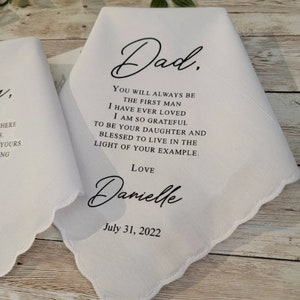 Dad,
YOU WILL ALWAYS BE
THE FIRST MAN
I HAVE EVER LOVED
I AM SO GRATEFUL
TO BE YOUR DAUGHTER AND
BLESSED TO LIVE IN THE
LIGHT OF YOUR EXAMPLE.
LOVE
Danielle
July 31, 2022
HERE
YOURS
NG